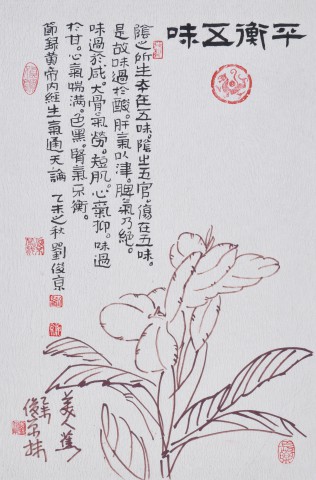 平衡五味
陰之所生本在五味。陰出五官。傷在五味。
是故味過於酸。肝氣以津。脾氣乃絕。
味過於咸。大骨氣勞。短肌。心氣抑。味過
於甘。心氣喘滿。色黑。腎氣不衡。
節錄黃帝內經生氣通天論 乙未之秋 劉俊京
美人蕉